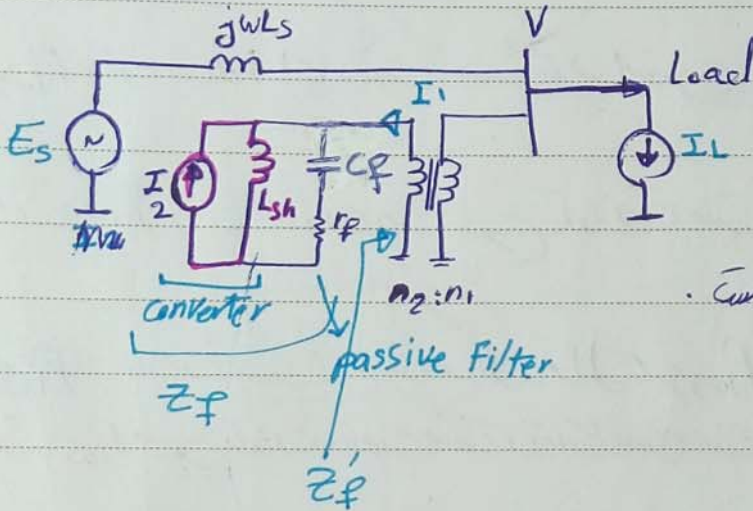 jwLs
V
Load
I1
Es
I2
Lsh
Cf
rf
IL
n2:n1
converter
passive Filter
Zf
Z'f